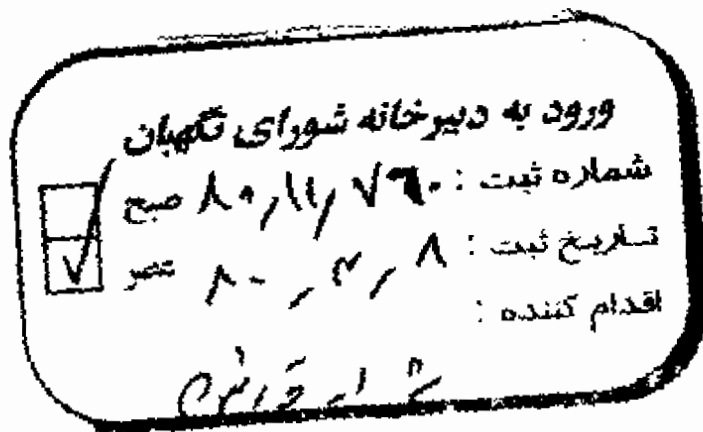 ورود به دبیرخانه شورای نگهبان
شماره ثبت : ۸۰٫۱۱٫ صبح
تاریخ ثبت : ۸۰٫۳٫۸ عصر
اقدام کننده :